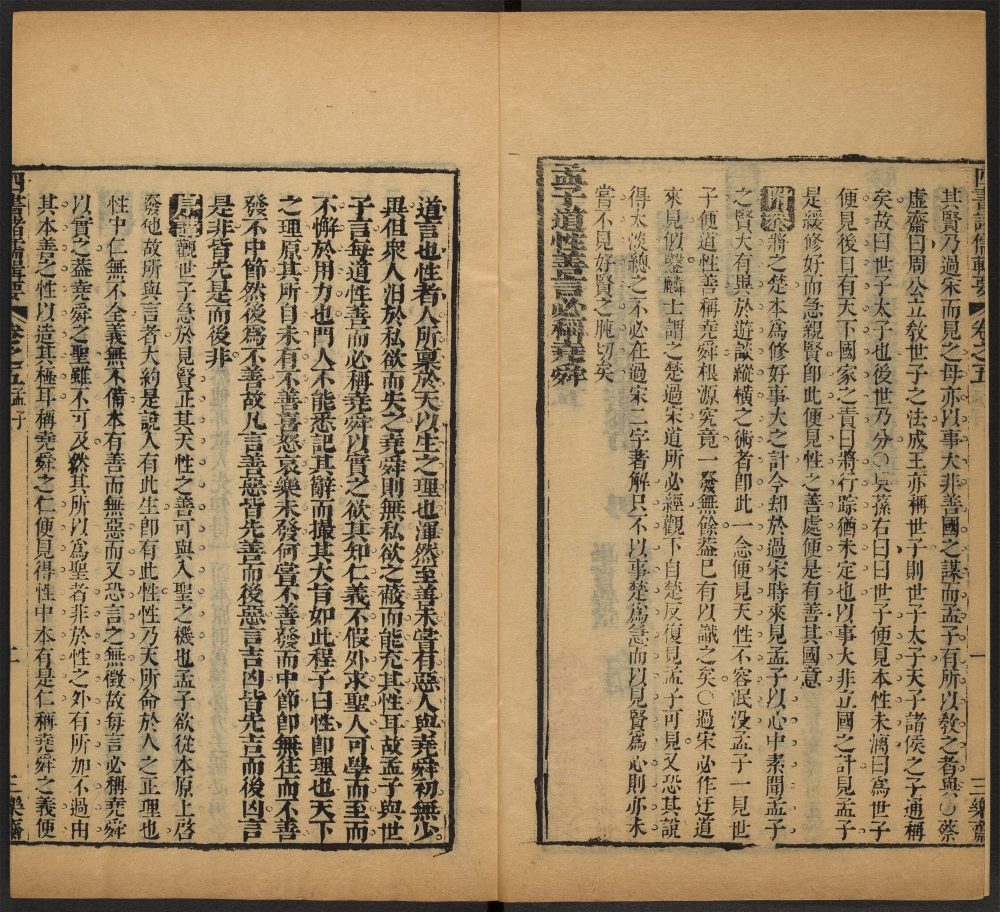 四書諸儒輯要 卷之五 一 三樂齋
其賢乃過宋而見之母亦以事大非善國之謀而孟子有所以教之者與○蔡
虛齋曰周公立教世子之法成王亦稱世子則世子太子天子諸侯之子通稱
矣故曰世子太子也後世乃分○吳蓀右曰曰世子便見本性未漓曰爲世子
便見後日有天下國家之責曰將行踪猶未定也以事大非立國之計見孟子
是緩修好而急親賢卽此便見性之善處便是有善其國意
附叅將之楚本爲修好事大之計今却於過宋時來見孟子以心中素聞孟子
之賢大有異於遊談縱橫之術者卽此一念便見天性不容泯没孟子一見世
子便道性善稱堯舜根源究竟一發無餘葢已有以識之矣○過宋必作迂道
來見似鑿麟士謂之楚過宋道所必經觀下自楚反復見孟子可見又恐其說
得太淡總之不必在過宋二字著解只不以事楚爲急而以見賢爲心則亦未
嘗不見好賢之肫切矣
孟子道性善言必稱堯舜
道言也性者人所稟於天以生之理也渾然至善未嘗有惡人與堯舜初無少
異但衆人汨於私欲而失之堯舜則無私欲之蔽而能充其性耳故孟子與世
子言每道性善而必稱堯舜以實之欲其知仁義不假外求聖人可學而至而
不懈於用力也門人不能悉記其辭而撮其大旨如此程子曰性卽理也天下
之理原其所自未有不善喜怒哀樂未發何嘗不善發而中節卽無往而不善
發不中節然後爲不善故凡言善惡皆先善而後惡言吉凶皆先吉而後凶言
是非皆先是而後非
註觀世子急於見賢正其天性之善可與入聖之機也孟子欲從本原上啓
發他故所與言者大約是說人有此生卽有此性性乃天所命於人之正理也
性中仁無不全義無不備本有善而無惡而又恐言之無徵故每言必稱堯舜
以實之葢堯舜之聖雖不可及然其所以爲聖者非於性之外有所加不過由
其本善之性以造其極耳稱堯舜之仁便見得性中本有是仁稱堯舜之義便
四書諸儒輯要 卷之五 孟子 二 三樂齋